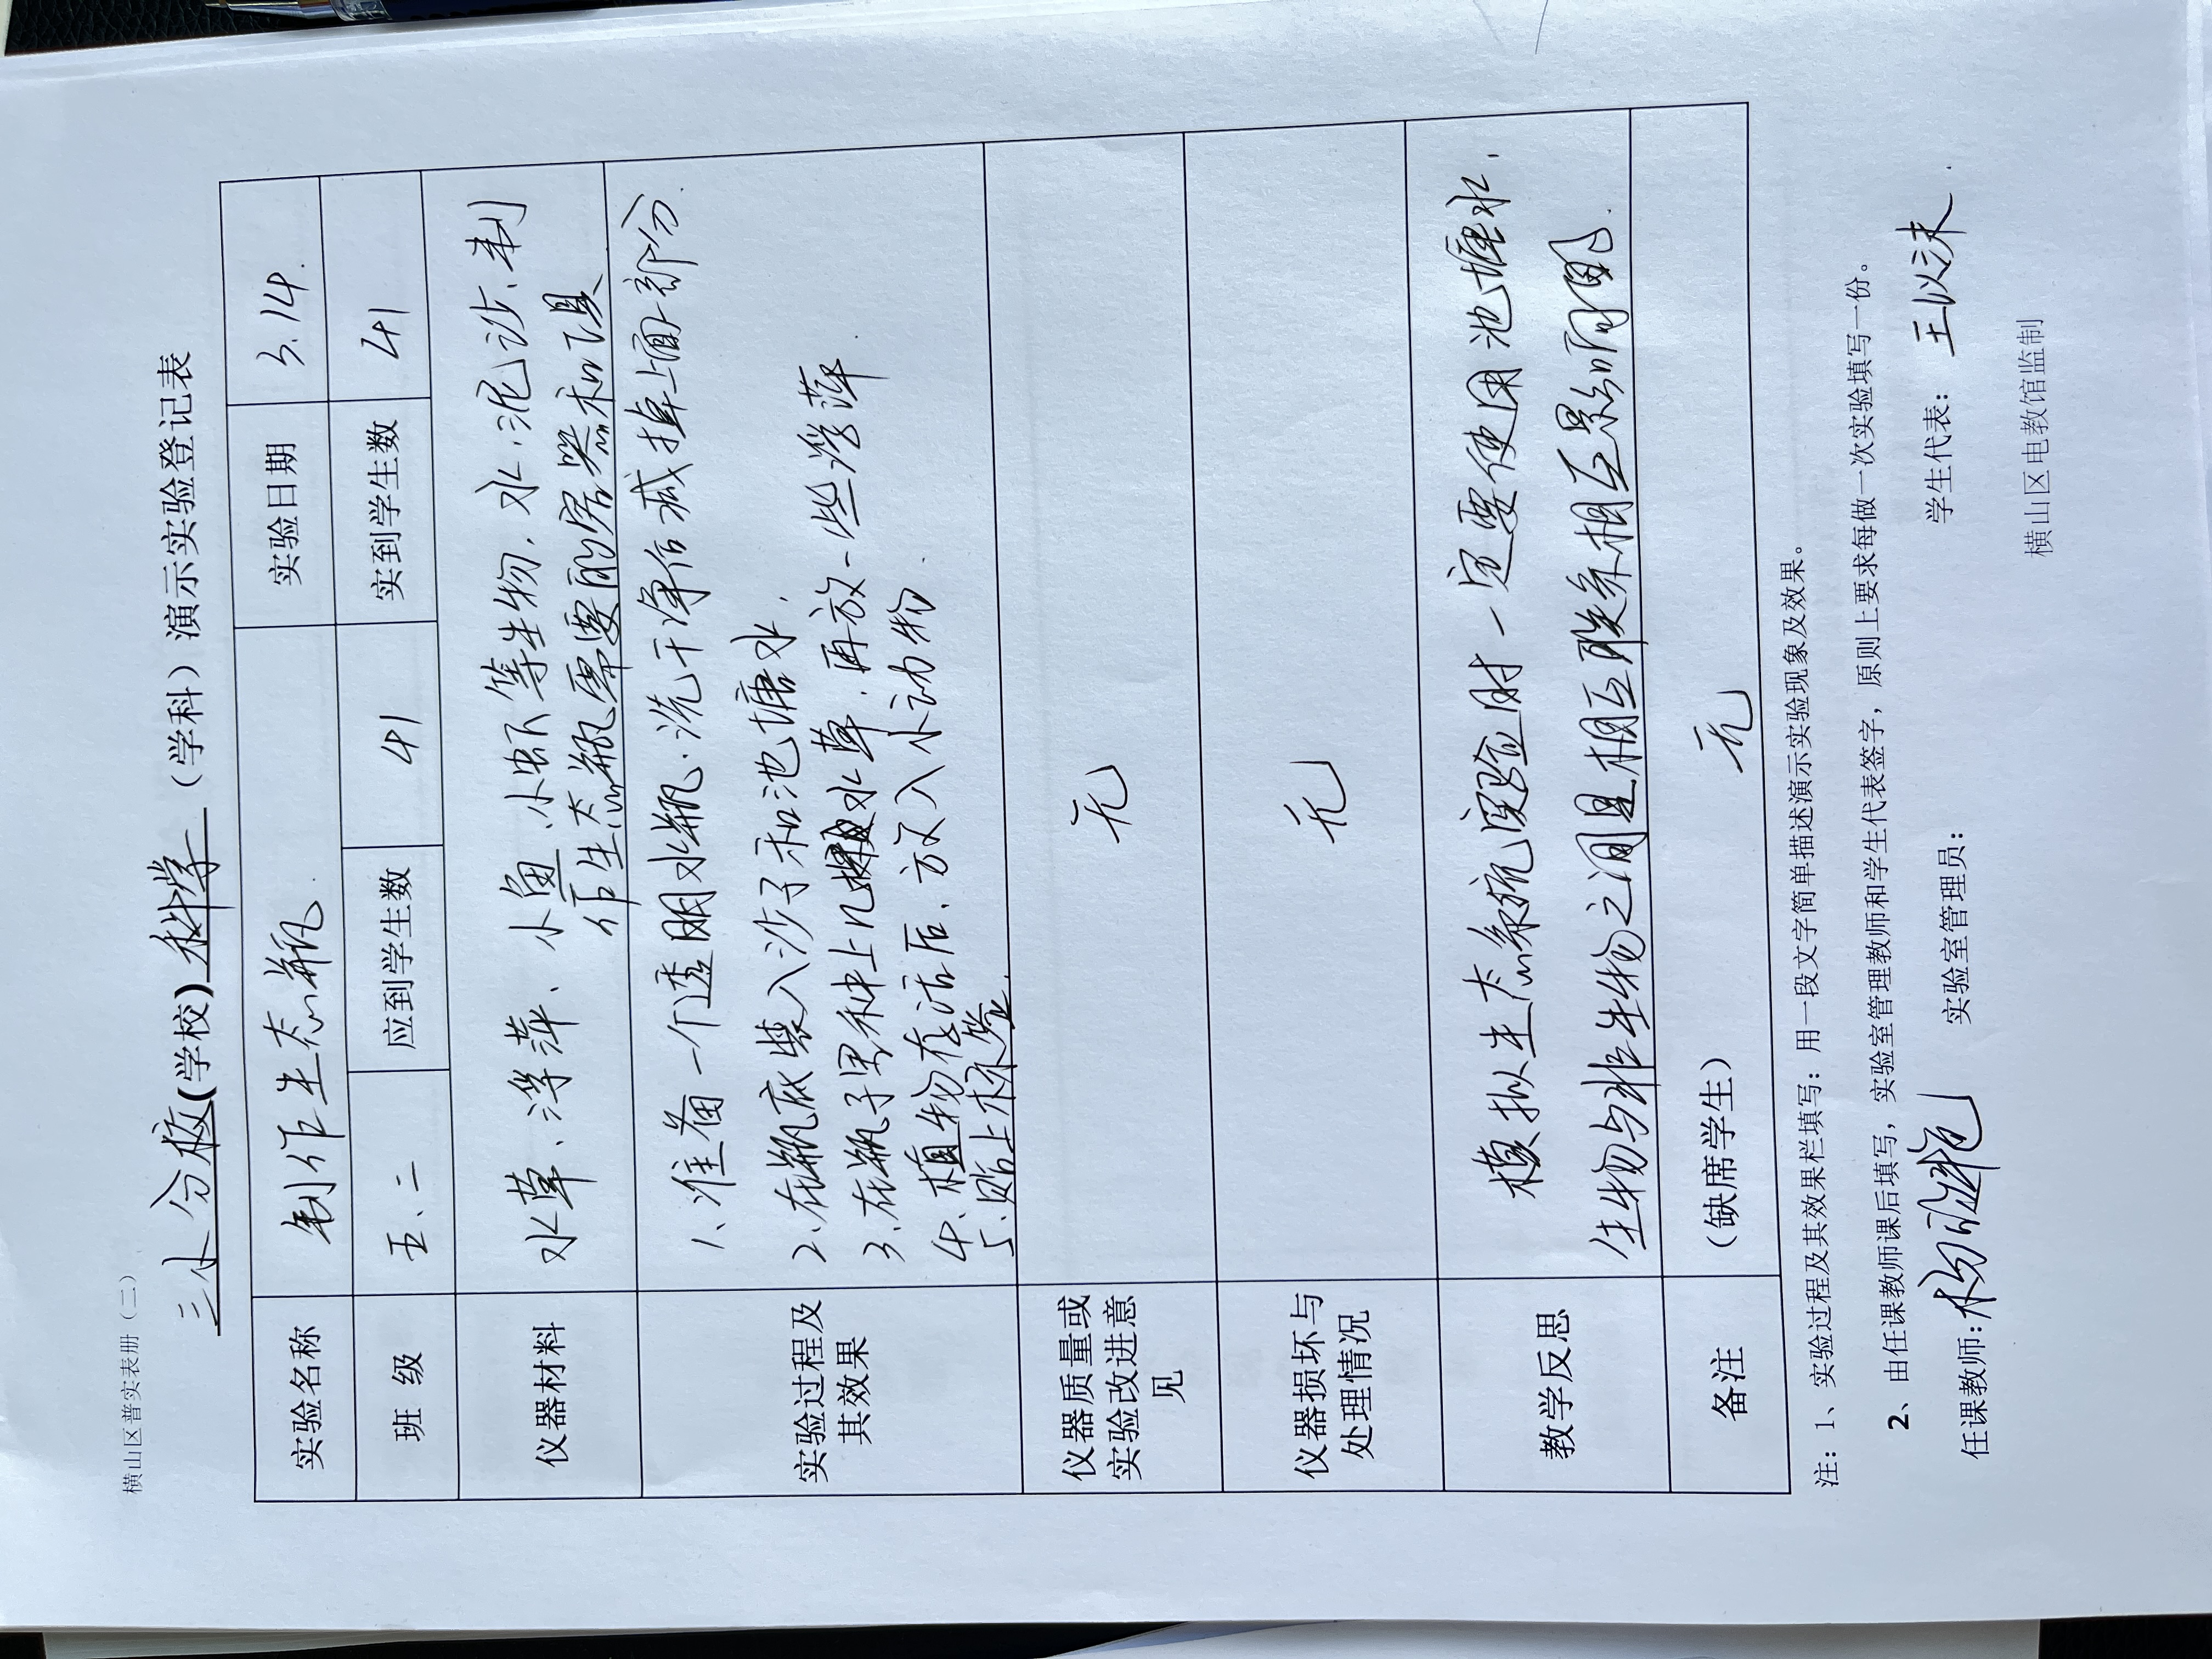 横山区普实表册（二）
三小分校(学校)科学（学科）演示实验登记表
实验名称 制作生态瓶 实验日期 3.14.
班 级 五、二 应到学生数 41 实到学生数 41
仪器材料 水草、浮萍、小鱼、小虾等生物，水、泥沙、制
作生态瓶需要的容器和工具
实验过程及
其效果
1、准备一个透明水瓶、洗干净后减掉上面部分.
2、在瓶底装入沙子和池塘水.
3、在瓶子里种上几棵水草.再放一些浮萍
4、植物存活后、放入小动物.
5、贴上标签.
仪器质量或
实验改进意
见
无
仪器损坏与
处理情况
无
教学反思
模拟生态系统实验时一定要使用池塘水.
生物与非生物之间是相互联系相互影响的.
备注 （缺席学生） 无
注：1、实验过程及其效果栏填写：用一段文字简单描述演示实验现象及效果。
2、由任课教师课后填写，实验室管理教师和学生代表签字，原则上要求每做一次实验填写一份。
任课教师: 实验室管理员: 学生代表: 王以沫.
横山区电教馆监制